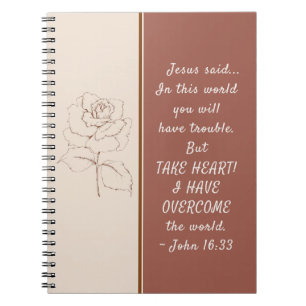 Jesus said...
In this world
you will
have trouble.
But
TAKE HEART!
I HAVE
OVERCOME
the world.
~ John 16:33